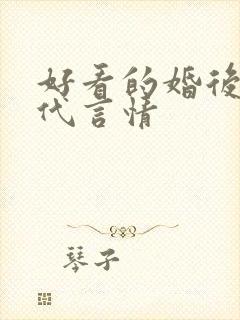 好看的婚後
代言情
琴子